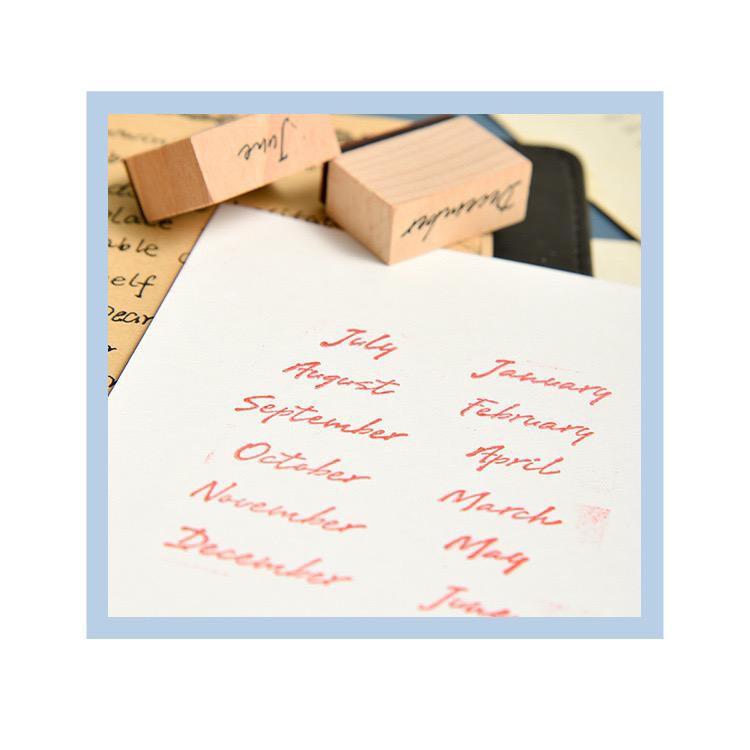 June
December
able
elf
July
August
September
October
November
December
January
February
April
March
May
June